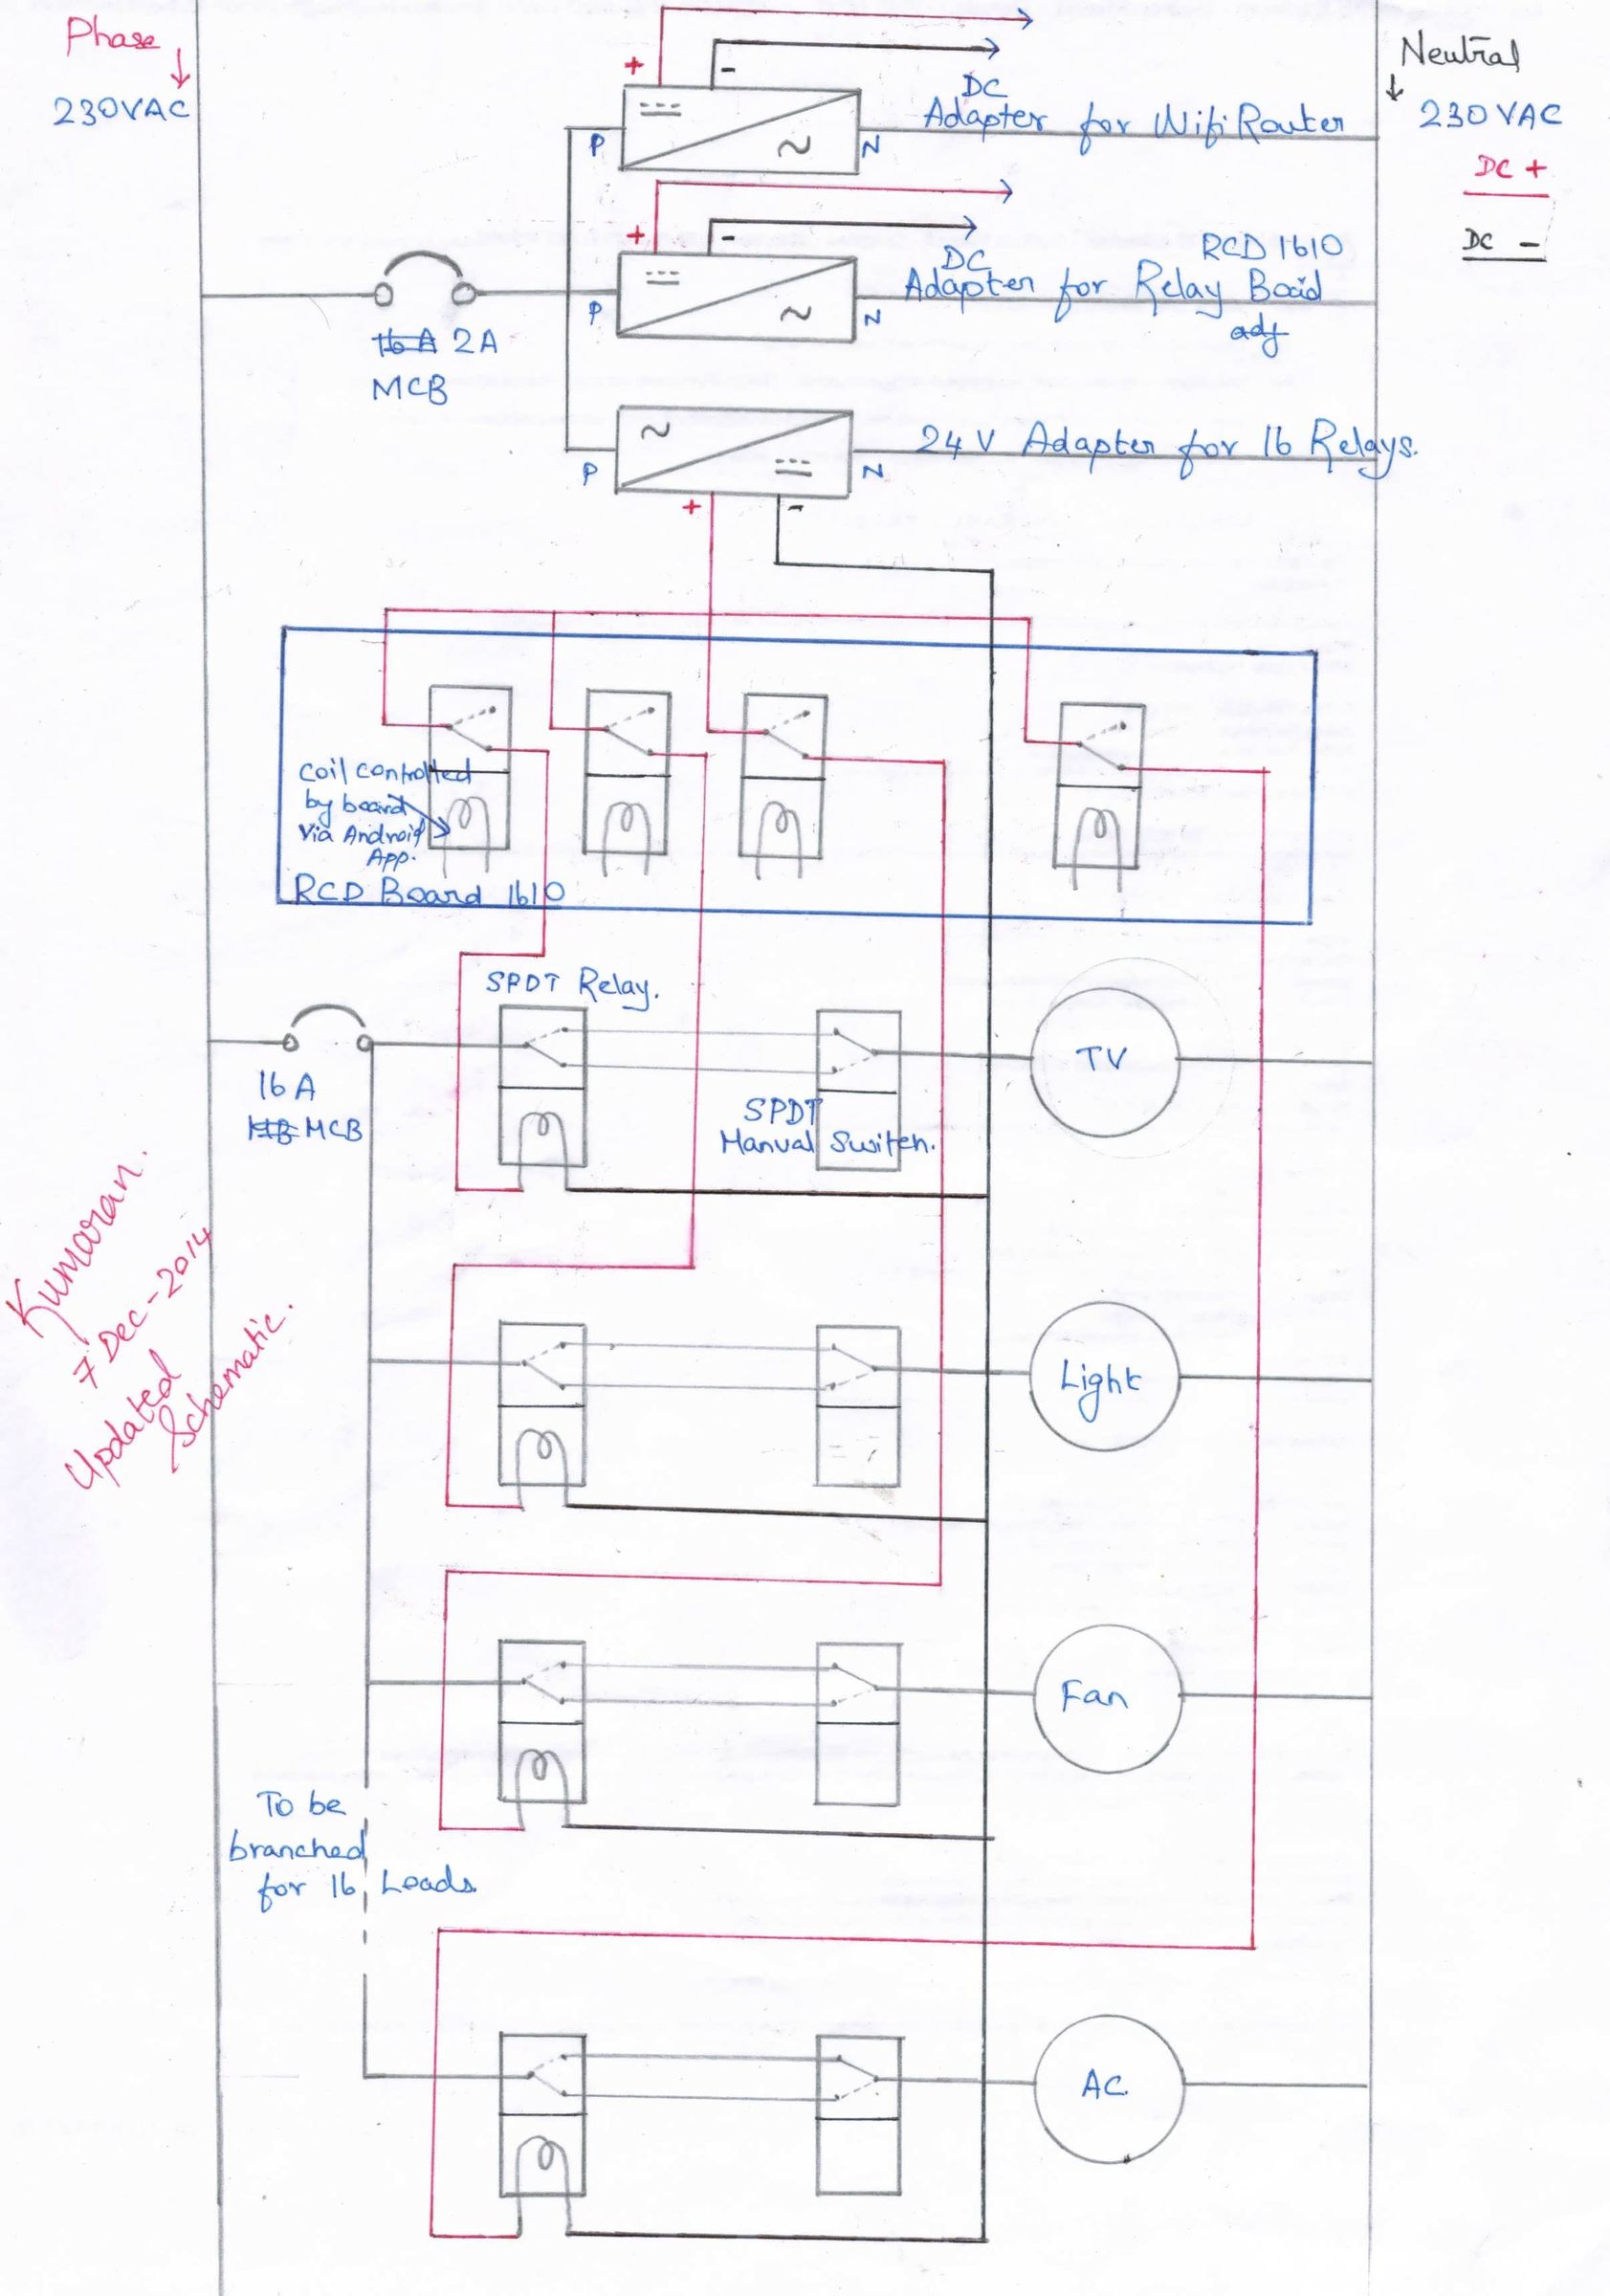 Phase
230VAC
Neutral
230 VAC
DC +
DC -
+
-
DC
Adapter for Wifi Router
P
N
+
-
RCD 1610
DC
Adapter for Relay Board
adj
P
N
16 A 2A
MCB
24V Adapter for 16 Relays.
P
N
+
-
Coil controlled
by board
Via Android
App.
RCD Board 1610
SPDT Relay.
16 A
MCB
SPDT
Manual Switch.
TV
Kumaran.
7 Dec-2014
Updated
Schematic.
Light
Fan
To be
branched
for 16 Loads.
AC